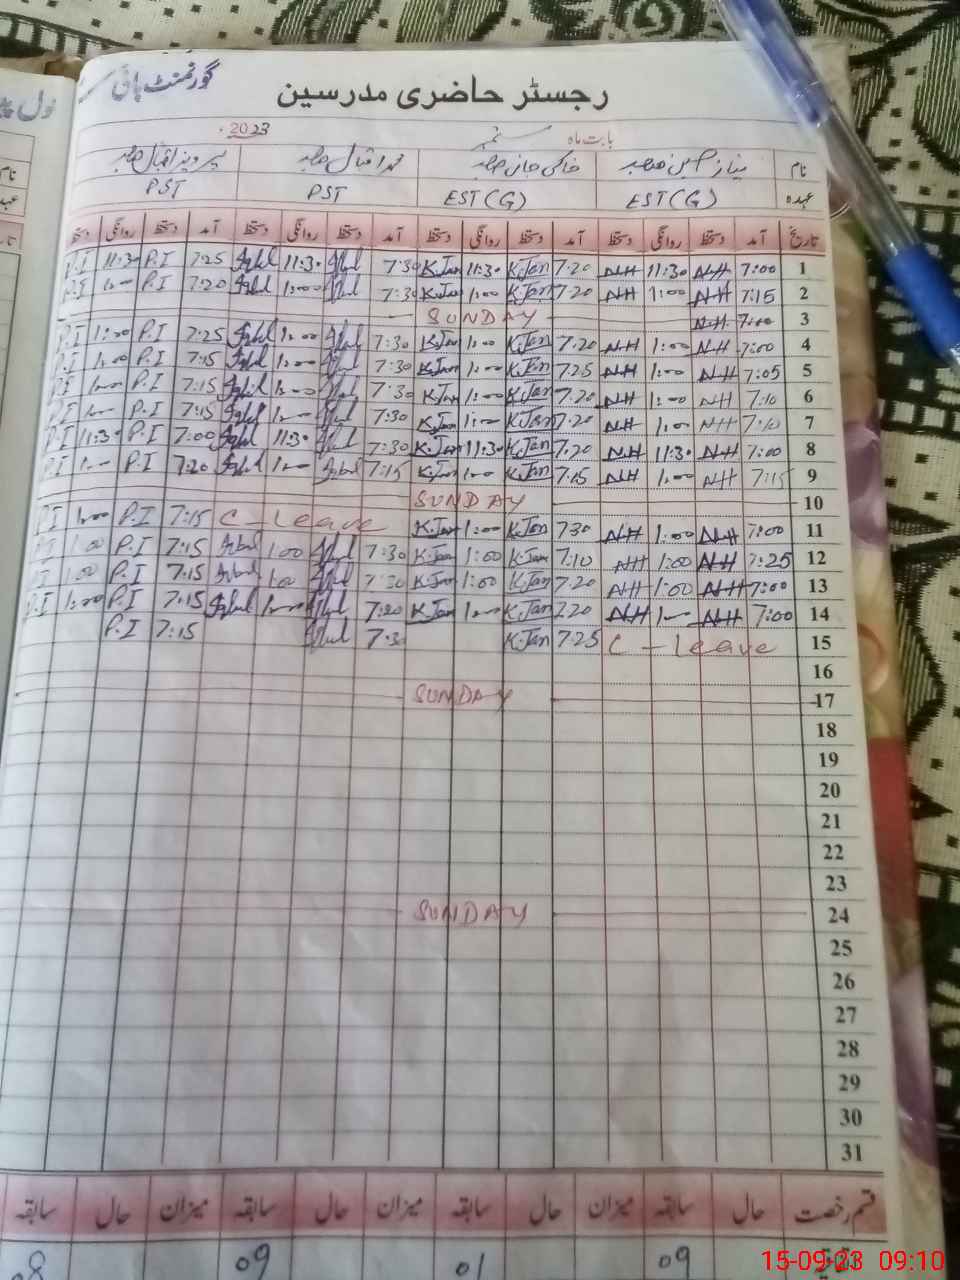 گورنمنٹ ہائی
رجسٹر حاضری مدرسین
بابت ماہ ستمبر 2023
نام خاکی جان صاحب محمد اقبال صاحب پرویز اقبال صاحب
عہدہ EST(G) EST(G) PST PST
تاریخ آمد دستخط روانگی دستخط آمد دستخط روانگی دستخط آمد دستخط روانگی دستخط آمد دستخط روانگی دستخط
1 7:00 NH 11:30 NH 7:20 K.Jan 11:30 K.Jan 7:30 Iqbal 11:30 Iqbal 7:25 P.I 11:30 P.I
2 7:15 NH 1:00 NH 7:20 K.Jan 1:00 K.Jan 7:30 Iqbal 1:00 Iqbal 7:20 P.I 1:00 P.I
3 7:00 N.H SUNDAY
4 7:00 NH 1:00 NH 7:20 K.Jan 1:00 K.Jan 7:30 Iqbal 1:00 Iqbal 7:25 P.I 1:00 P.I
5 7:05 NH 1:00 NH 7:25 K.Jan 1:00 K.Jan 7:30 Iqbal 1:00 Iqbal 7:15 P.I 1:00 P.I
6 7:10 NH 1:00 NH 7:20 K.Jan 1:00 K.Jan 7:30 Iqbal 1:00 Iqbal 7:15 P.I 1:00 P.I
7 7:10 NH 1:00 NH 7:20 K.Jan 1:00 K.Jan 7:30 Iqbal 1:00 Iqbal 7:15 P.I 1:00 P.I
8 7:00 NH 11:30 NH 7:20 K.Jan 11:30 K.Jan 7:30 Iqbal 11:30 Iqbal 7:00 P.I 11:30 P.I
9 7:15 NH 1:00 NH 7:15 K.Jan 1:00 K.Jan 7:15 Iqbal 1:00 Iqbal 7:20 P.I 1:00 P.I
10 SUNDAY
11 7:00 NH 1:00 NH 7:30 K.Jan 1:00 K.Jan C - Leave 7:15 P.I 1:00 P.I
12 7:25 NH 1:00 NH 7:10 K.Jan 1:00 K.Jan 7:30 Iqbal 1:00 Iqbal 7:15 P.I 1:00 P.I
13 7:00 NH 1:00 NH 7:20 K.Jan 1:00 K.Jan 7:30 Iqbal 1:00 Iqbal 7:15 P.I 1:00 P.I
14 7:00 NH 1:00 NH 7:20 K.Jan 1:00 K.Jan 7:20 Iqbal 1:00 Iqbal 7:15 P.I 1:00 P.I
15 C - Leave 7:25 K.Jan 7:30 Iqbal 7:15 P.I
16
17 SUNDAY
18
19
20
21
22
23
24 SUNDAY
25
26
27
28
29
30
31
قسم رخصت حال سابقہ میزان حال سابقہ میزان حال سابقہ میزان حال سابقہ
09 01 09 08
15-09-23 09:10